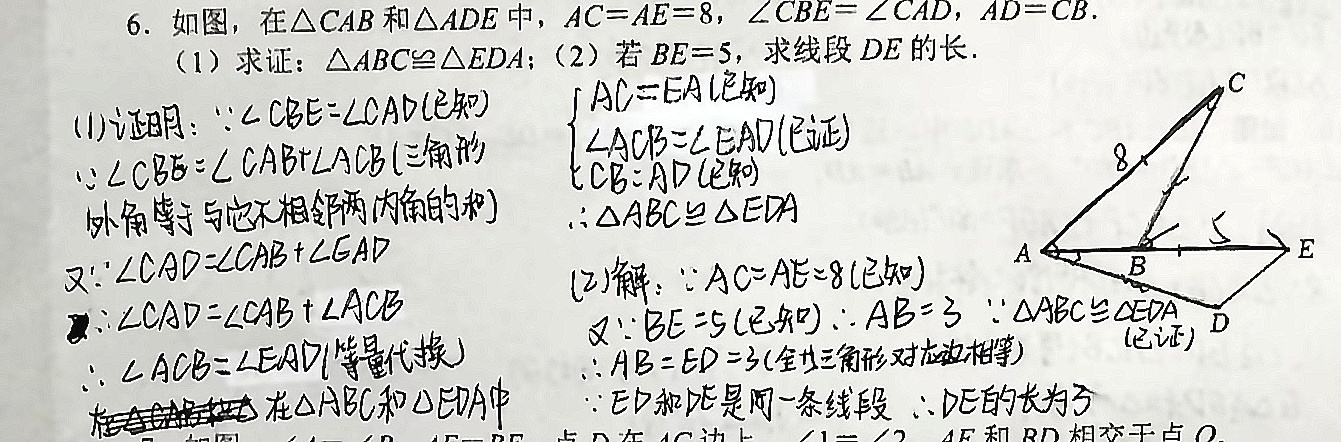 6. 如图，在△CAB和△ADE中，AC=AE=8，∠CBE=∠CAD，AD=CB.
（1）求证：△ABC≌△EDA；（2）若BE=5，求线段DE的长.
(1)证明：∵∠CBE=∠CAD(已知)
∵∠CBE=∠CAB+∠ACB(三角形
外角等于与它不相邻两内角的和)
又∵∠CAD=∠CAB+∠EAD
∴∠CAD=∠CAB+∠ACB
∴∠ACB=∠EAD(等量代换)
在△ABC和△EDA中
AC=EA(已知)
∠ACB=∠EAD(已证)
CB=AD(已知)
∴△ABC≌△EDA
(2)解：∵AC=AE=8(已知)
又∵BE=5(已知)∴AB=3 ∵△ABC≌△EDA
(已证)
∴AB=ED=3(全共三角形对应边相等)
∵ED和DE是同一条线段 ∴DE的长为3
C
8
5
A
B
E
D
7. 如图，∠A=∠B，AE=BE，点D在AC边上，∠1=∠2，AE和BD相交于点O.